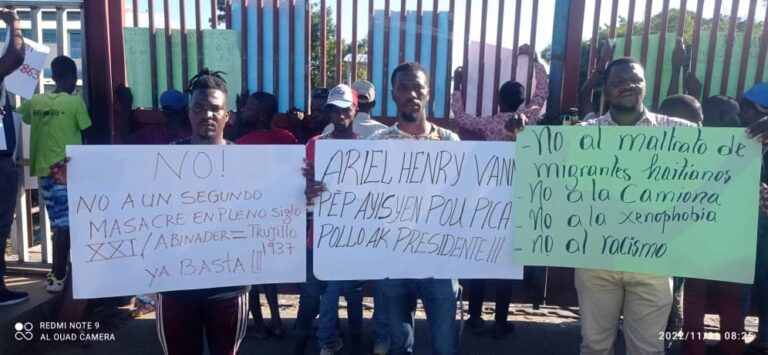 863
NO!
NO A UN SEGUNDO
MASACRE EN PLENO Siglo
XXI/ABINADER = Trujillo
1937
YA BASTA!!!
ARIEL HENRY VANN
PEP AYISYEN POU PICA
POLLO AK PRESIDENTE!!!
- No al maltrato de
migrantes haitianos
- No a la Camiona
- No a la xenophobia
- no al racismo
REDMI NOTE 9
AI QUAD CAMERA
2022/11/21 08:25